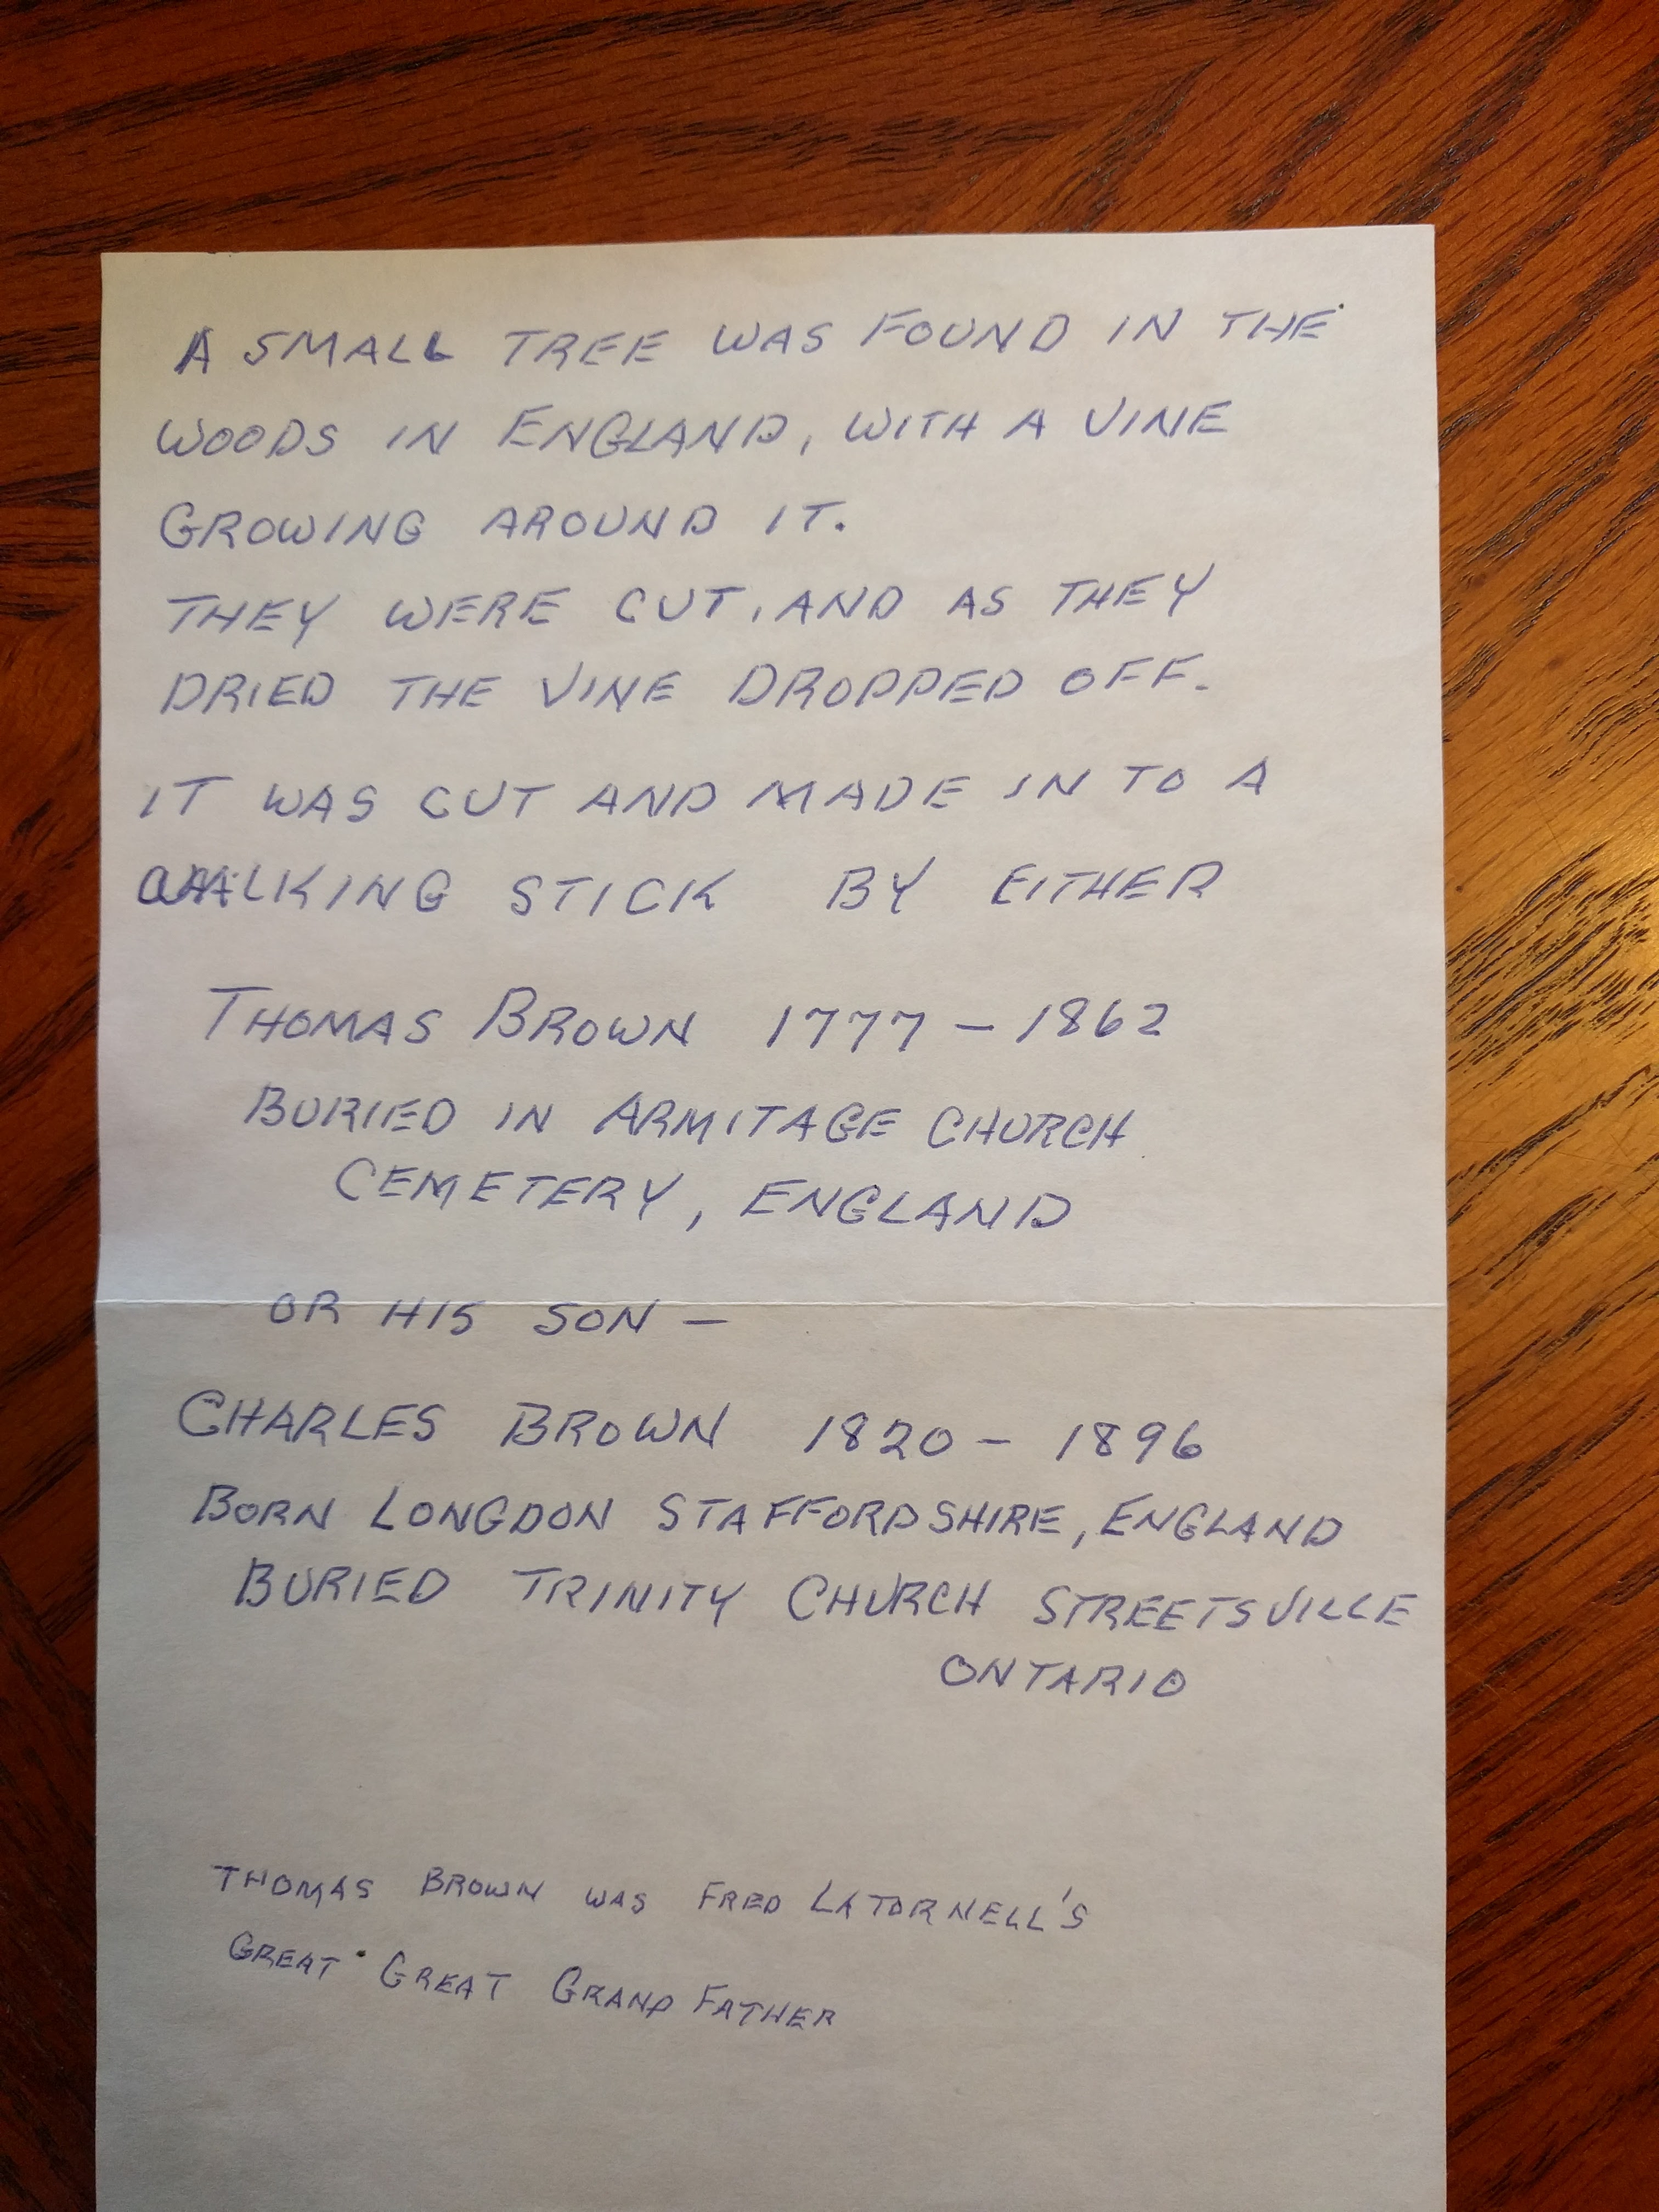 A SMALL TREE WAS FOUND IN THE
WOODS IN ENGLAND, WITH A VINE
GROWING AROUND IT.
THEY WERE CUT, AND AS THEY
DRIED THE VINE DROPPED OFF.
IT WAS CUT AND MADE IN TO A
WALKING STICK BY EITHER
THOMAS BROWN 1777 - 1862
BURIED IN ARMITAGE CHURCH
CEMETERY, ENGLAND
OR HIS SON -
CHARLES BROWN 1820 - 1896
BORN LONGDON STAFFORDSHIRE, ENGLAND
BURIED TRINITY CHURCH STREETSVILLE
ONTARIO
THOMAS BROWN WAS FRED LATORNELL'S
GREAT GREAT GRAND FATHER